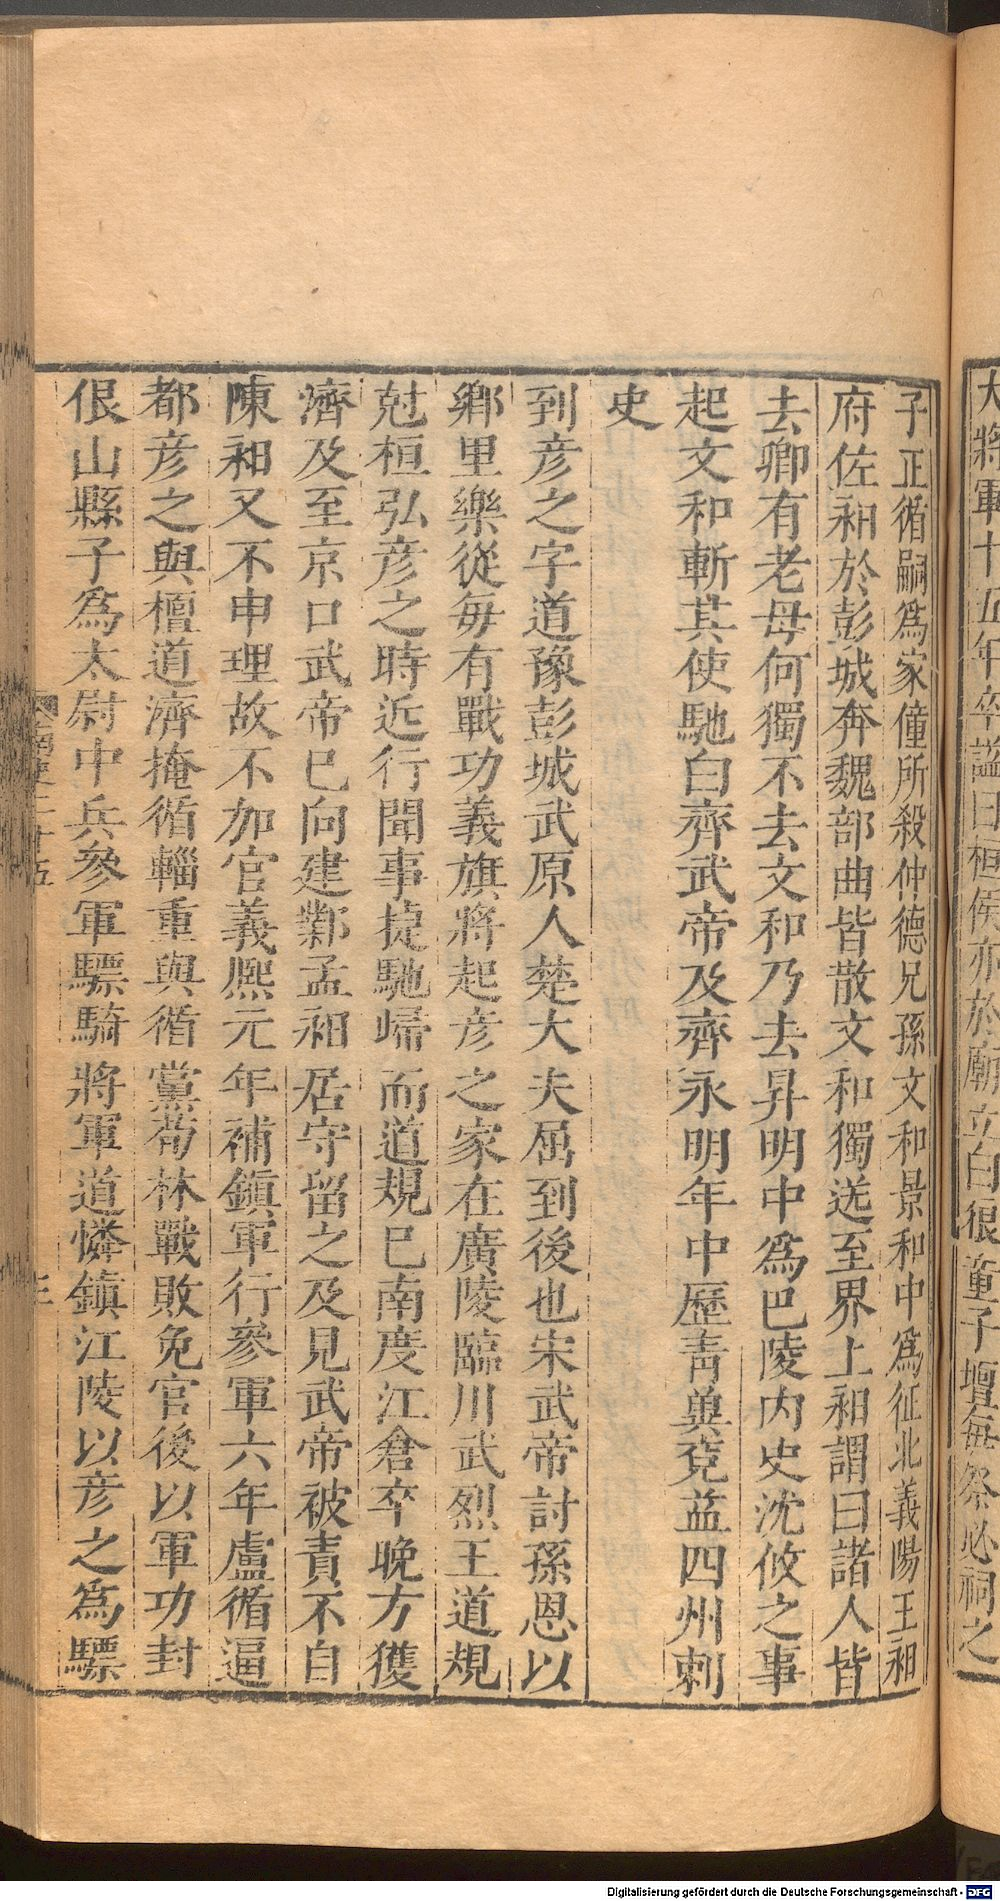 大將軍十五年卒諡曰桓侯亦於廟立白狼童子壇每祭必祠之
子正循嗣爲家僮所殺仲德兄孫文和景和中爲征北義陽王昶
府佐昶於彭城奔魏部曲皆散文和獨送至界上昶謂曰諸人皆
去卿有老母何獨不去文和乃去昇明中爲巴陵內史沈攸之事
起文和斬其使馳白齊武帝及齊永明年中歷青兾兗益四州刺
史
到彦之字道豫彭城武原人楚大夫屈到後也宋武帝討孫恩以
鄉里樂從每有戰功義旗將起彦之家在廣陵臨川武烈王道規
尅桓弘彦之時近行聞事捷馳歸而道規巳南度江倉卒晚方獲
濟及至京口武帝巳向建鄴孟昶居守留之及見武帝被責不自
陳昶又不申理故不加官義熈元年補鎮軍行參軍六年盧循逼
都彦之與檀道濟掩循輜重與循黨荀林戰敗免官後以軍功封
佷山縣子爲太尉中兵參軍驃騎將軍道憐鎮江陵以彦之爲驃
南史二十五
三
Digitalisierung gefördert durch die Deutsche Forschungsgemeinschaft - DFG